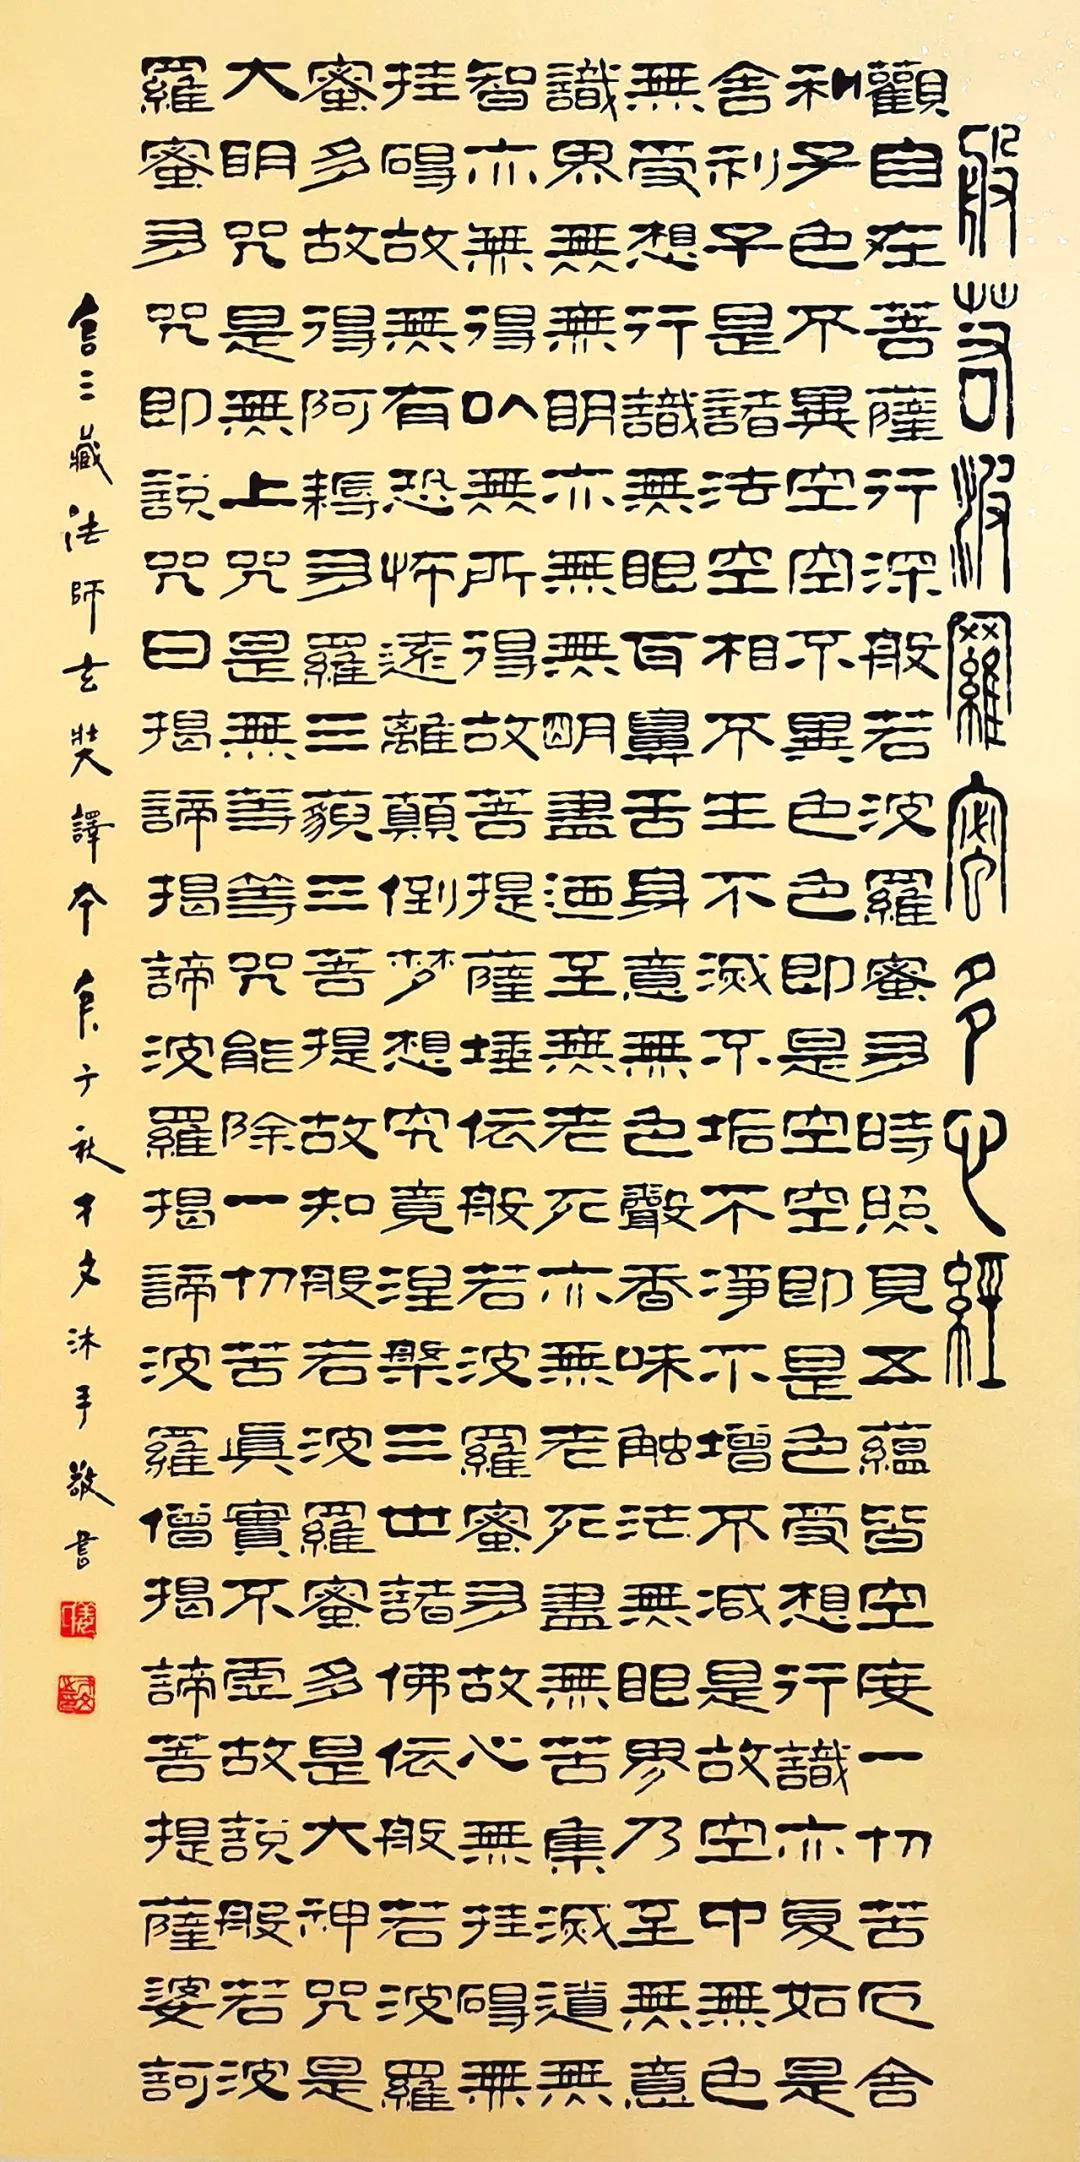 般若波羅蜜多心經
觀自在菩薩行深般若波羅蜜多時照見五蘊皆空度一切苦厄舍
利子色不異空空不異色色即是空空即是色受想行識亦复如是
舍利子是諸法空相不生不滅不垢不淨不增不減是故空中無色
無受想行識無眼耳鼻舌身意無色聲香味触法無眼界乃至無意
識界無無明亦無無明盡迺至無老死亦無老死盡無苦集滅道無
智亦無得以無所得故菩提薩埵依般若波羅蜜多故心無挂碍無
挂碍故無有恐怖遠離顛倒梦想究竟涅槃三世諸佛依般若波羅
蜜多故得阿耨多羅三藐三菩提故知般若波羅蜜多是大神咒是
大明咒是無上咒是無等等咒能除一切苦真實不虛故說般若波
羅蜜多咒即說咒曰揭諦揭諦波羅揭諦波羅僧揭諦菩提薩婆訶
唐三藏法師玄奘譯本庚子秋才文沐手敬書